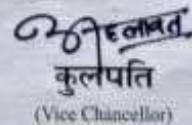 कुलपति
(Vice Chancellor)